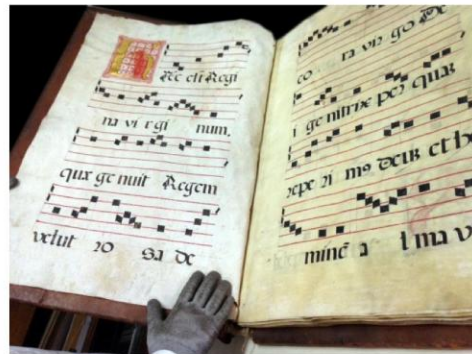 Æc est Regi
na vi rgi num,
quæ ge nuit Regem
velut ro sa de
co ra vir go De
i ge nitrix per quaꝫ
repe ri mꝰ deuꝫ et h
minē a l ma v